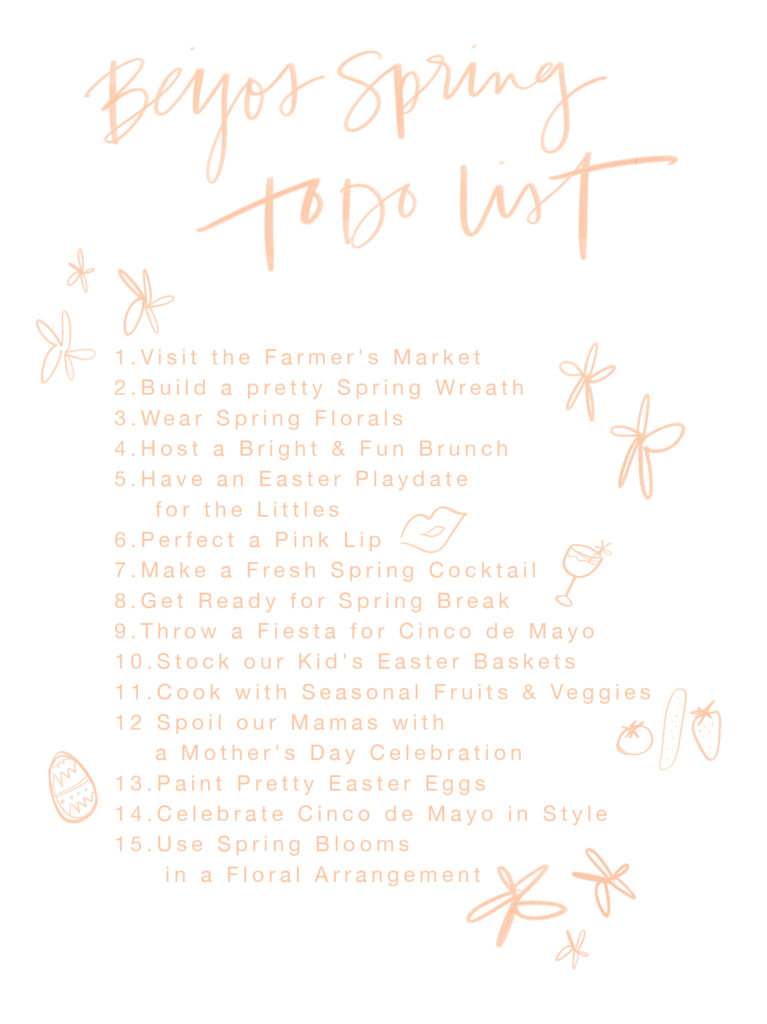 Beijos Spring
To Do List
1.Visit the Farmer's Market
2.Build a pretty Spring Wreath
3.Wear Spring Florals
4.Host a Bright & Fun Brunch
5.Have an Easter Playdate
for the Littles
6.Perfect a Pink Lip
7.Make a Fresh Spring Cocktail
8.Get Ready for Spring Break
9.Throw a Fiesta for Cinco de Mayo
10.Stock our Kid's Easter Baskets
11.Cook with Seasonal Fruits & Veggies
12 Spoil our Mamas with
a Mother's Day Celebration
13.Paint Pretty Easter Eggs
14.Celebrate Cinco de Mayo in Style
15.Use Spring Blooms
in a Floral Arrangement